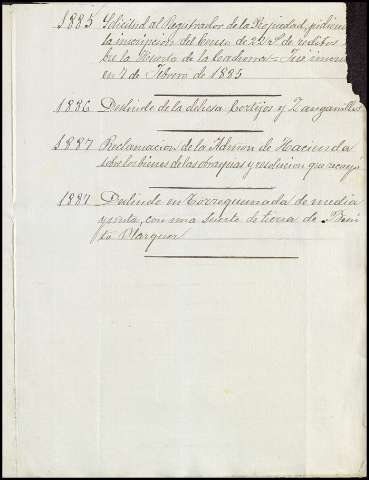 1885 Solicitud al Registrador de la Propiedad, pidiendo
la inscripcion del Censo de 22 rs. de reditos
bre la Huerta de la Cachorra = Fué
en 7 de Febrero de 1885
1886 Deslinde de la dehesa Cortijos y Zanganillas
1887 Reclamacion de la Admon de Hacienda
sobre los bienes de las obras pias y resolucion que recayó
1887 Deslinde en Torrequemada de media
yunta, con una suerte de tierra de Beni
to